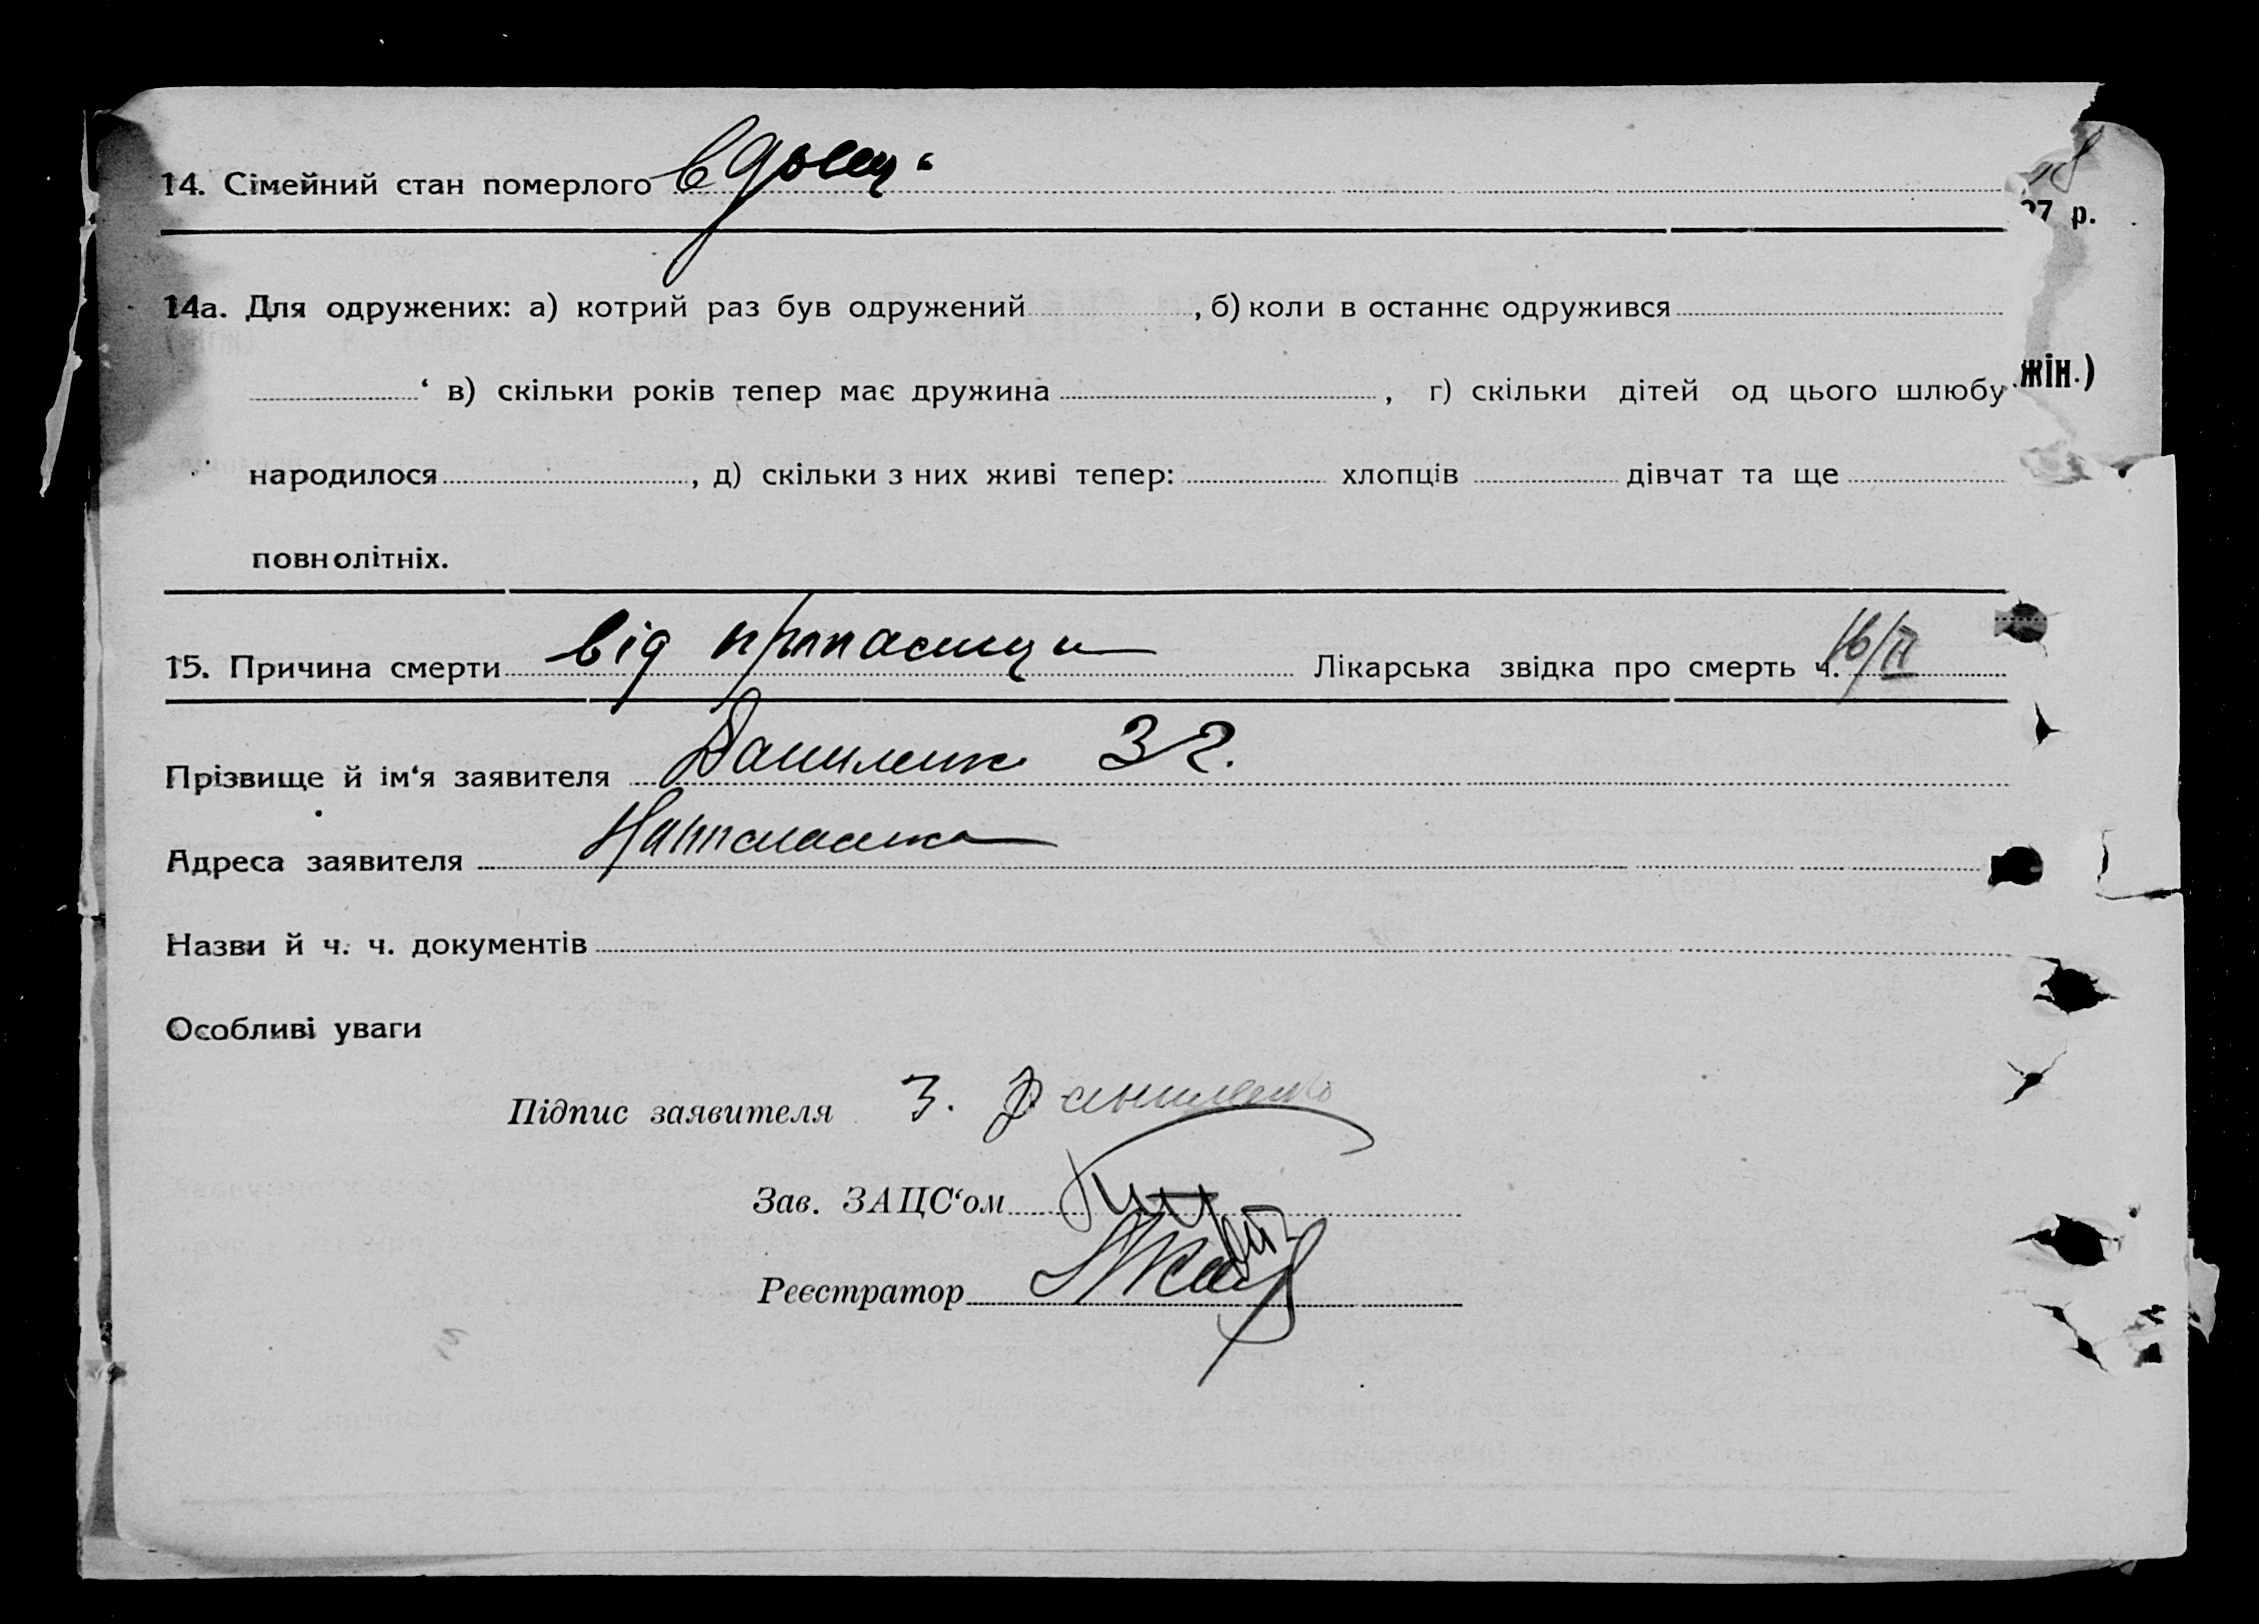 14. Сімейний стан померлого вдовец‘
27 р.
14а. Для одружених: а) котрий раз був одружений , б) коли в останнє одружився
‘ в) скільки років тепер має дружина , г) скільки дітей од цього шлюбу
жін.)
народилося , д) скільки з них живі тепер: хлопців дівчат та ще
повнолітніх.
15. Причина смерти від пропасниці Лікарська звідка про смерть ч. 16/II
Прізвище й ім‘я заявителя Даниленко З Г.
Адреса заявителя
Назви й ч. ч. документів
Особливі уваги
Підпис заявителя З. Даниленко
Зав. ЗАЦС‘ом
Реєстратор